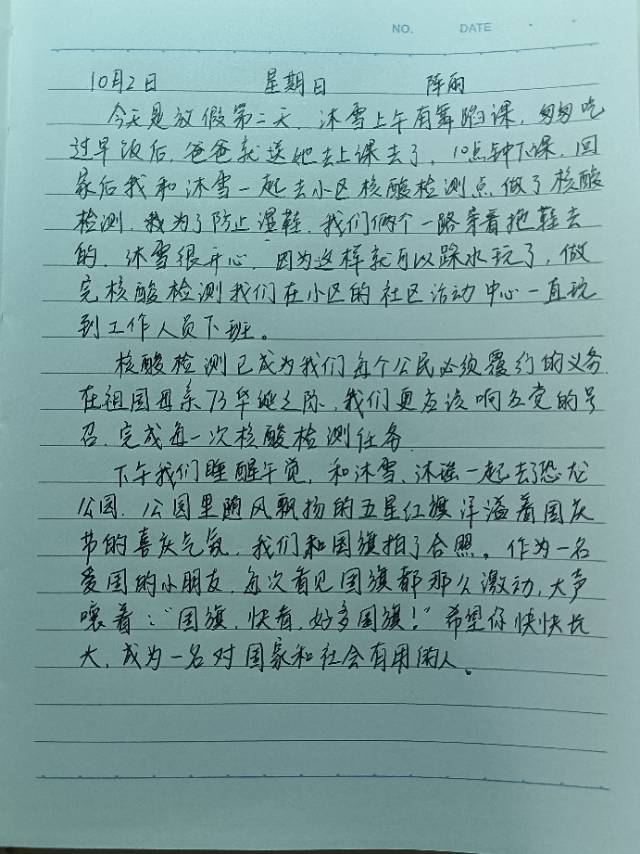 NO. DATE
10月2日 星期日 阵雨
今天是放假第二天，沐雪上午有舞蹈课，匆匆吃
过早饭后，爸爸就送她去上课去了，10点钟下课，回
家后我和沐雪一起去小区核酸检测点做了核酸
检测，我为了防止湿鞋，我们俩个一路穿着拖鞋去
的，沐雪很开心，因为这样就可以踩水玩了，做
完核酸检测我们在小区的社区活动中心一直玩
到工作人员下班。
核酸检测已成为我们每个公民必须履约的义务，
在祖国母亲73华诞之际，我们更应该响应党的号
召，完成每一次核酸检测任务
下午我们睡醒午觉，和沐雪、沐谣一起去了恐龙
公园，公园里随风飘扬的五星红旗洋溢着国庆
节的喜庆气氛，我们和国旗拍了合照。作为一名
爱国的小朋友，每次看见国旗都那么激动，大声
嚷着：“国旗，快看，好多国旗！”希望你快快长
大，成为一名对国家和社会有用的人。